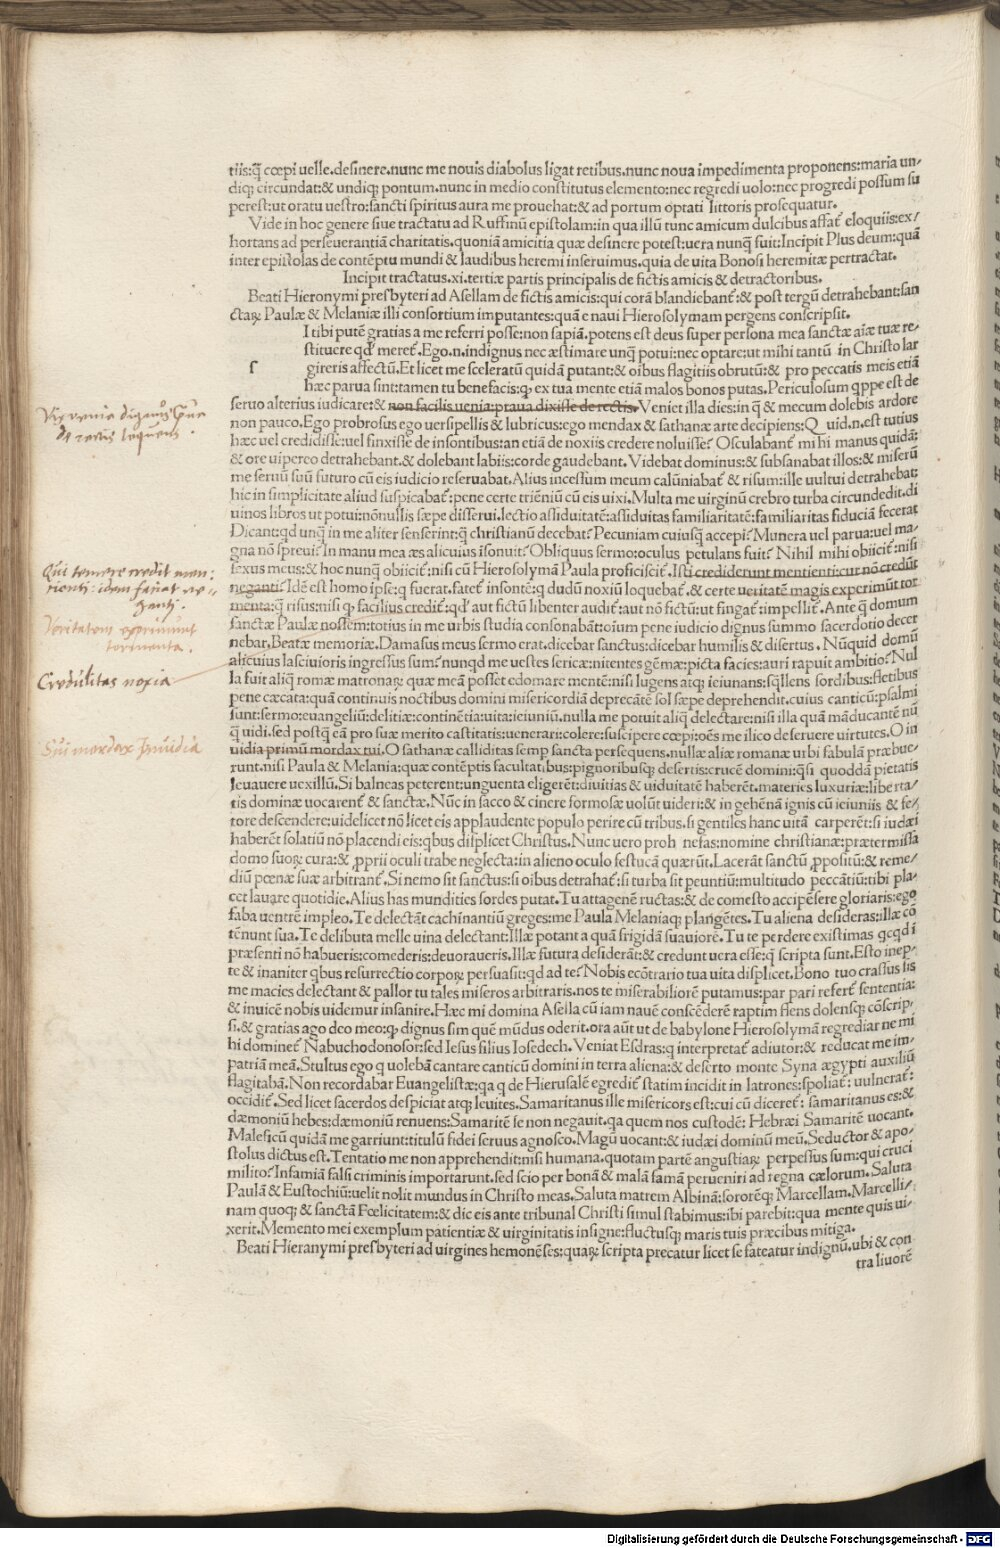 tiis:q̃ cœpi uelle.desinere.nunc me nouis diabolus ligat retibus.nunc noua impedimenta proponens:maria un-
diq; circundat:& undiq; pontum.nunc in medio constitutus elemento:nec regredi uolo:nec progredi possum su
perest:ut oratu uestro:sancti spiritus aura me prouehat:& ad portum optati littoris prosequatur.
Vide in hoc genere siue tractatu ad Ruffinũ epistolam:in qua illũ tunc amicum dulcibus affat̃ eloquiis:ex/
hortans ad perseuerantiã charitatis.quoniã amicitia quæ desinere potest:uera nunq̃ fuit:Incipit Plus deum:quã
inter epistolas de contẽptu mundi & laudibus heremi inseruimus.quia de uita Bonosi heremitæ pertractat.
Incipit tractatus.xi.tertiæ partis principalis de fictis amicis & detractoribus.
Beati Hieronymi presbyteri ad Asellam de fictis amicis:qui corã blandiebant̃:& post tergũ detrahebant:san
ctaꝝ Paulæ & Melaniæ illi consortium imputantes:quã e naui Hierosolymam pergens conscripsit.
I tibi putẽ gratias a me referri posse:non sapiã.potens est deus super persona mea sanctæ aĩæ tuæ re-
stituere qd̃ meret̃.Ego.n.indignus nec æstimare unq̃ potui:nec optare:ut mihi tantũ in Christo lar
s gireris affectũ.Et licet me sceleratũ quidã putant:& oĩbus flagitiis obrutũ:& pro peccatis meis etiã
hæc parua sint:tamen tu benefacis:ꝙ ex tua mente etiã malos bonos putas.Periculosum qppe est de
seruo alterius iudicare:& non facilis uenia:praua dixisse de rectis.Veniet illa dies:in q̃ & mecum dolebis ardore
non pauco.Ego probrosus ego uersipellis & lubricus:ego mendax & sathanæ arte decipiens:Quid.n.est tutius
hæc uel credidisse:uel finxisse de insontibus:an etiã de noxiis credere noluisse? Osculabant̃ mihi manus quidã:
& ore uipereo detrahebant.& dolebant labiis:corde gaudebant.Videbat dominus:& subsanabat illos:& miserũ
me seruũ suũ futuro cũ eis iudicio reseruabat.Alius incessum meum calũniabat̃ & risum:ille uultui detrahebat:
hic in simplicitate aliud suspicabat̃:pene certe triẽniũ cũ eis uixi.Multa me uirginũ crebro turba circundedit.di
uinos libros ut potui:nõnullis sæpe disserui.lectio assiduitatẽ:assiduitas familiaritatẽ:familiaritas fiduciã fecerat
Dicant:qd unq̃ in me aliter senserint:q̃ christianũ decebat? Pecuniam cuiusq̃ accepi? Munera uel parua:uel ma-
gna nõ spreui? In manu mea æs alicuius isonuit? Obliquus sermo:oculus petulans fuit? Nihil mihi obiicit̃:nisi
sexus meus:& hoc nunq̃ obiicit̃:nisi cũ Hierosolymã Paula proficiscit̃.Isti crediderunt mentienti:cur nõ credũt
neganti? Idẽ est homo ipse:q fuerat.fatet̃ insontẽ:q dudũ noxiũ loquebat̃.& certe ueritatẽ magis experimũt tor
menta:q̃ risus:nisi ꝙ facilius credit̃:qd̃ aut fictũ libenter audit̃:aut nõ fictũ:ut fingat̃:impellit̃.Ante q̃ domum
sanctæ Paulæ nossem:totius in me urbis studia consonabãt:oĩum pene iudicio dignus summo sacerdotio decer
nebar.Beatæ memoriæ.Damasus meus sermo erat.dicebar sanctus:dicebar humilis & disertus. Nũquid domũ
alicuius lasciuioris ingressus sum? nunqd me uestes sericæ:nitentes gẽmæ:picta facies:auri rapuit ambitio? Nul
la fuit aliq̃ romæ matronaꝝ quæ meã posset edomare mentẽ:nisi lugens atq; ieiunans:sq̃llens sordibus:fletibus
pene cæcata:quã continuis noctibus domini misericordiã deprecãtẽ sol sæpe deprehendit.cuius canticũ:psalmi
sunt:sermo:euangeliũ:delitiæ:continẽtia:uita:ieiuniũ.nulla me potuit aliq̃ delectare:nisi illa quã mãducantẽ nũ
q̃ uidi.sed postq̃ eã pro suæ merito castitatis:uenerari:colere:suscipere cœpi:oẽs me ilico deseruere uirtutes.O in
uidia primũ mordax tui.O sathanæ calliditas semp sancta persequens.nullæ aliæ romanæ urbi fabulã præbue-
runt.nisi Paula & Melania:quæ contẽptis facultatibus:pignoribusq; desertis:crucẽ domini:q̃si quoddã pietatis
leuauere uexillũ.Si balneas peterent:unguenta eligerẽt:diuitias & uiduitatẽ haberẽt.materies luxuriæ:liberta/
tis dominæ uocarent̃ & sanctæ.Nũc in sacco & cinere formosæ uolũt uideri:& in gehẽnã ignis cũ ieiuniis & fe/
tore descendere:uidelicet nõ licet eis applaudente populo perire cũ tribus.si gentiles hanc uitã carperẽt:si iudæi
haberẽt solatiũ nõ placendi eis:qbus displicet Christus.Nunc uero proh nefas:nomine christianæ:prætermissa
domo suoꝝ cura:& ꝓprii oculi trabe neglecta:in alieno oculo festucã quærũt.Lacerãt sanctũ ꝓpositũ:& reme/
diũ pœnæ suæ arbitrant̃.Si nemo sit sanctus:si oĩbus detrahat̃:si turba sit peuntiũ:multitudo peccãtiũ:tibi pla-
cet lauare quotidie.Alius has mundities sordes putat.Tu attagenẽ ructas:& de comesto accipẽsere gloriaris:ego
faba uentrẽ impleo.Te delectãt cachĩnantiũ greges:me Paula Melaniaq; plangẽtes.Tu aliena desideras:illæ cõ
tẽnunt sua.Te delibuta melle uina delectant:Illæ potant aquã frigidã suauiorẽ.Tu te perdere existimas qcqd ĩ
præsenti nõ habueris:comederis:deuoraueris.Illæ futura desiderãt:& credunt uera esse:q̃ scripta sunt.Esto inep-
te & inaniter qbus resurrectio corpoꝝ persuasit:qd ad te? Nobis ecõtrario tua uita displicet.Bono tuo crassus sis
me macies delectant & pallor tu tales miseros arbitraris.nos te miserabiliorẽ putamus:par pari refert̃ sententia:
& inuicẽ nobis uidemur insanire.Hæc mi domina Asella cũ iam nauẽ conscẽderẽ raptim flens dolensq; cõscrip-
si.& gratias ago deo meo:ꝙ dignus sim quẽ mũdus oderit.ora aũt ut de babylone Hierosolymã regrediar ne mi
hi dominet̃ Nabuchodonosor:sed Iesus filius Iosedech.Veniat Esdras:q interpretat̃ adiutor:& reducat me im-
patriã meã.Stultus ego q uolebã cantare canticũ domini in terra aliena:& deserto monte Syna ægypti auxiliũ
flagitabã.Non recordabar Euangelistæ:qa q de Hierusalẽ egredit̃ statim incidit in latrones:spoliat̃: uulnerat̃:
occidit̃.Sed licet sacerdos despiciat atq; leuites.Samaritanus ille misericors est:cui cũ diceret̃: samaritanus es:&
dæmoniũ hebes:dæmoniũ renuens:Samaritẽ se non negauit.qa quem nos custodẽ: Hebræi Samaritẽ uocant.
Maleficũ quidã me garriunt:titulũ fidei seruus agnosco.Magũ uocant:& iudæi dominũ meũ.Seductor & apo-
stolus dictus est.Tentatio me non apprehendit:nisi humana.quotam partẽ angustiaꝝ perpessus sum:qui cruci
milito? Infamiã falsi criminis importarunt.sed scio per bonã & malã famã perueniri ad regna cælorum.Saluta
Paulã & Eustochiũ:uelit nolit mundus in Christo meas.Saluta matrem Albinã:sororẽq; Marcellam.Marcelli/
nam quoq; & sanctã Fœlicitatem:& dic eis ante tribunal Christi simul stabimus:ibi parebit:qua mente quis ui-
xerit.Memento mei exemplum patientiæ & uirginitatis insigne:fluctusq; maris tuis præcibus mitiga.
Beati Hieranymi presbyteri ad uirgines hemonẽses:quaꝝ scripta precatur licet se fateatur indignũ.ubi & con
tra liuorẽ
Vix venia dignus qui
de rectis loquens.
Qui temere credit men-
tienti: idem fatiat ne-
ganti.
Veritatem exprimunt
tormenta.
Credulitas noxia
Sui mordax Inuidia
Digitalisierung gefördert durch die Deutsche Forschungsgemeinschaft - DFG